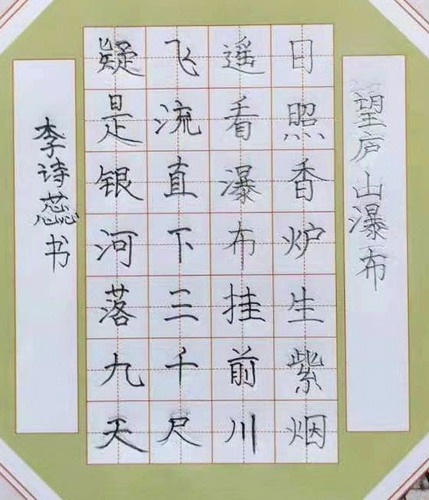 望庐山瀑布
日照香炉生紫烟
遥看瀑布挂前川
飞流直下三千尺
疑是银河落九天
李诗蕊书